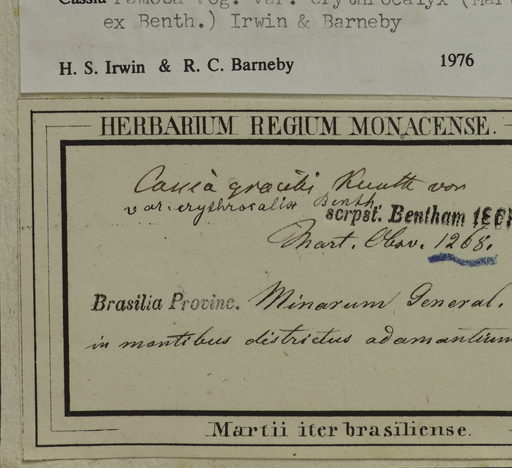 Cassia ramosa Vog. var. erythrocalyx (Mart
ex Benth.) Irwin & Barneby
H. S. Irwin & R. C. Barneby 1976
HERBARIUM REGIUM MONACENSE.
Cassia gracilis Kunth var
var. erythrocalix Benth
scrpst. Bentham
Mart. Obsv. 1268.
Brasilia Provinc. Minarum General.
in montibus districtus adamantium
Martii iter brasiliense.